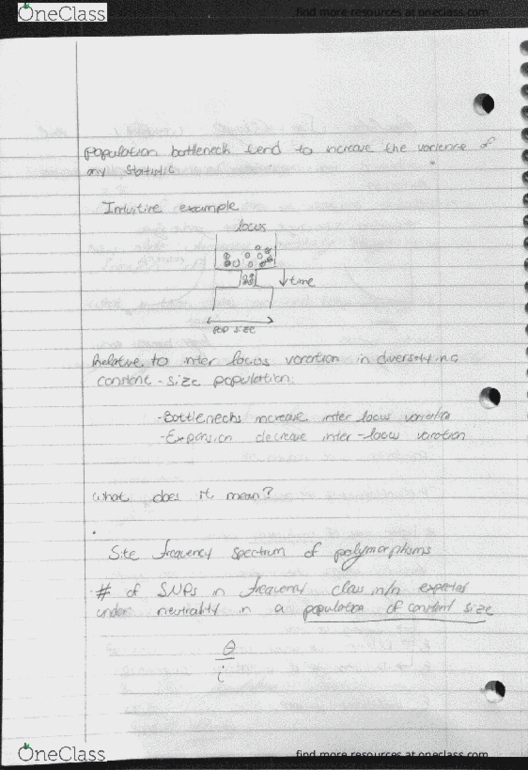 OneClass
find more resources at oneclass.com
population bottleneck tend to increase the varience of
any statistic
Intuitive example
locus
time
pop size
Relative to inter locus varation in diversity in a
constant-size population:
-Bottlenecks increase inter locus variation
-Expansion decrease inter-locus varation
what does it mean?
Site frequency spectrum of polymorphisms
# of SNPs in frequency class i/n expected
under neutrality in a population of constant size
θ
i
OneClass
find more resources at oneclass.com